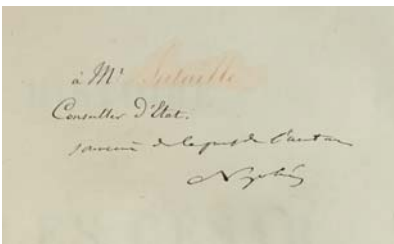 à Mr Bataille
Conseiller d'Etat.
souvenir de la part de l'auteur
Napoléon